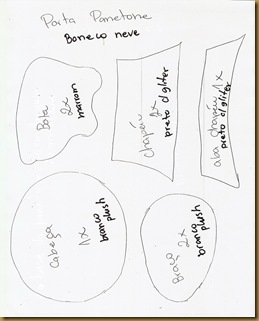 Porta Panetone
Boneco neve
Bota
2x
marrom
Chapéu
2x
preto c/gliter
aba chapéu 1x
preto c/gliter
Cabeça
1x
branco
plush
Braço 2x
branco
plush